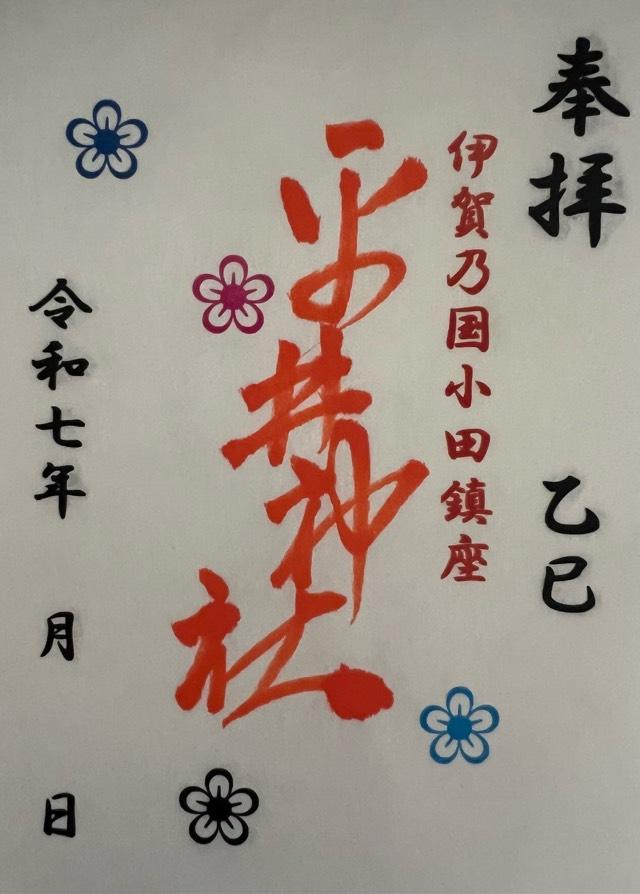 奉拝
乙巳
伊賀乃国小田鎮座
平井神社
令和七年
月
日